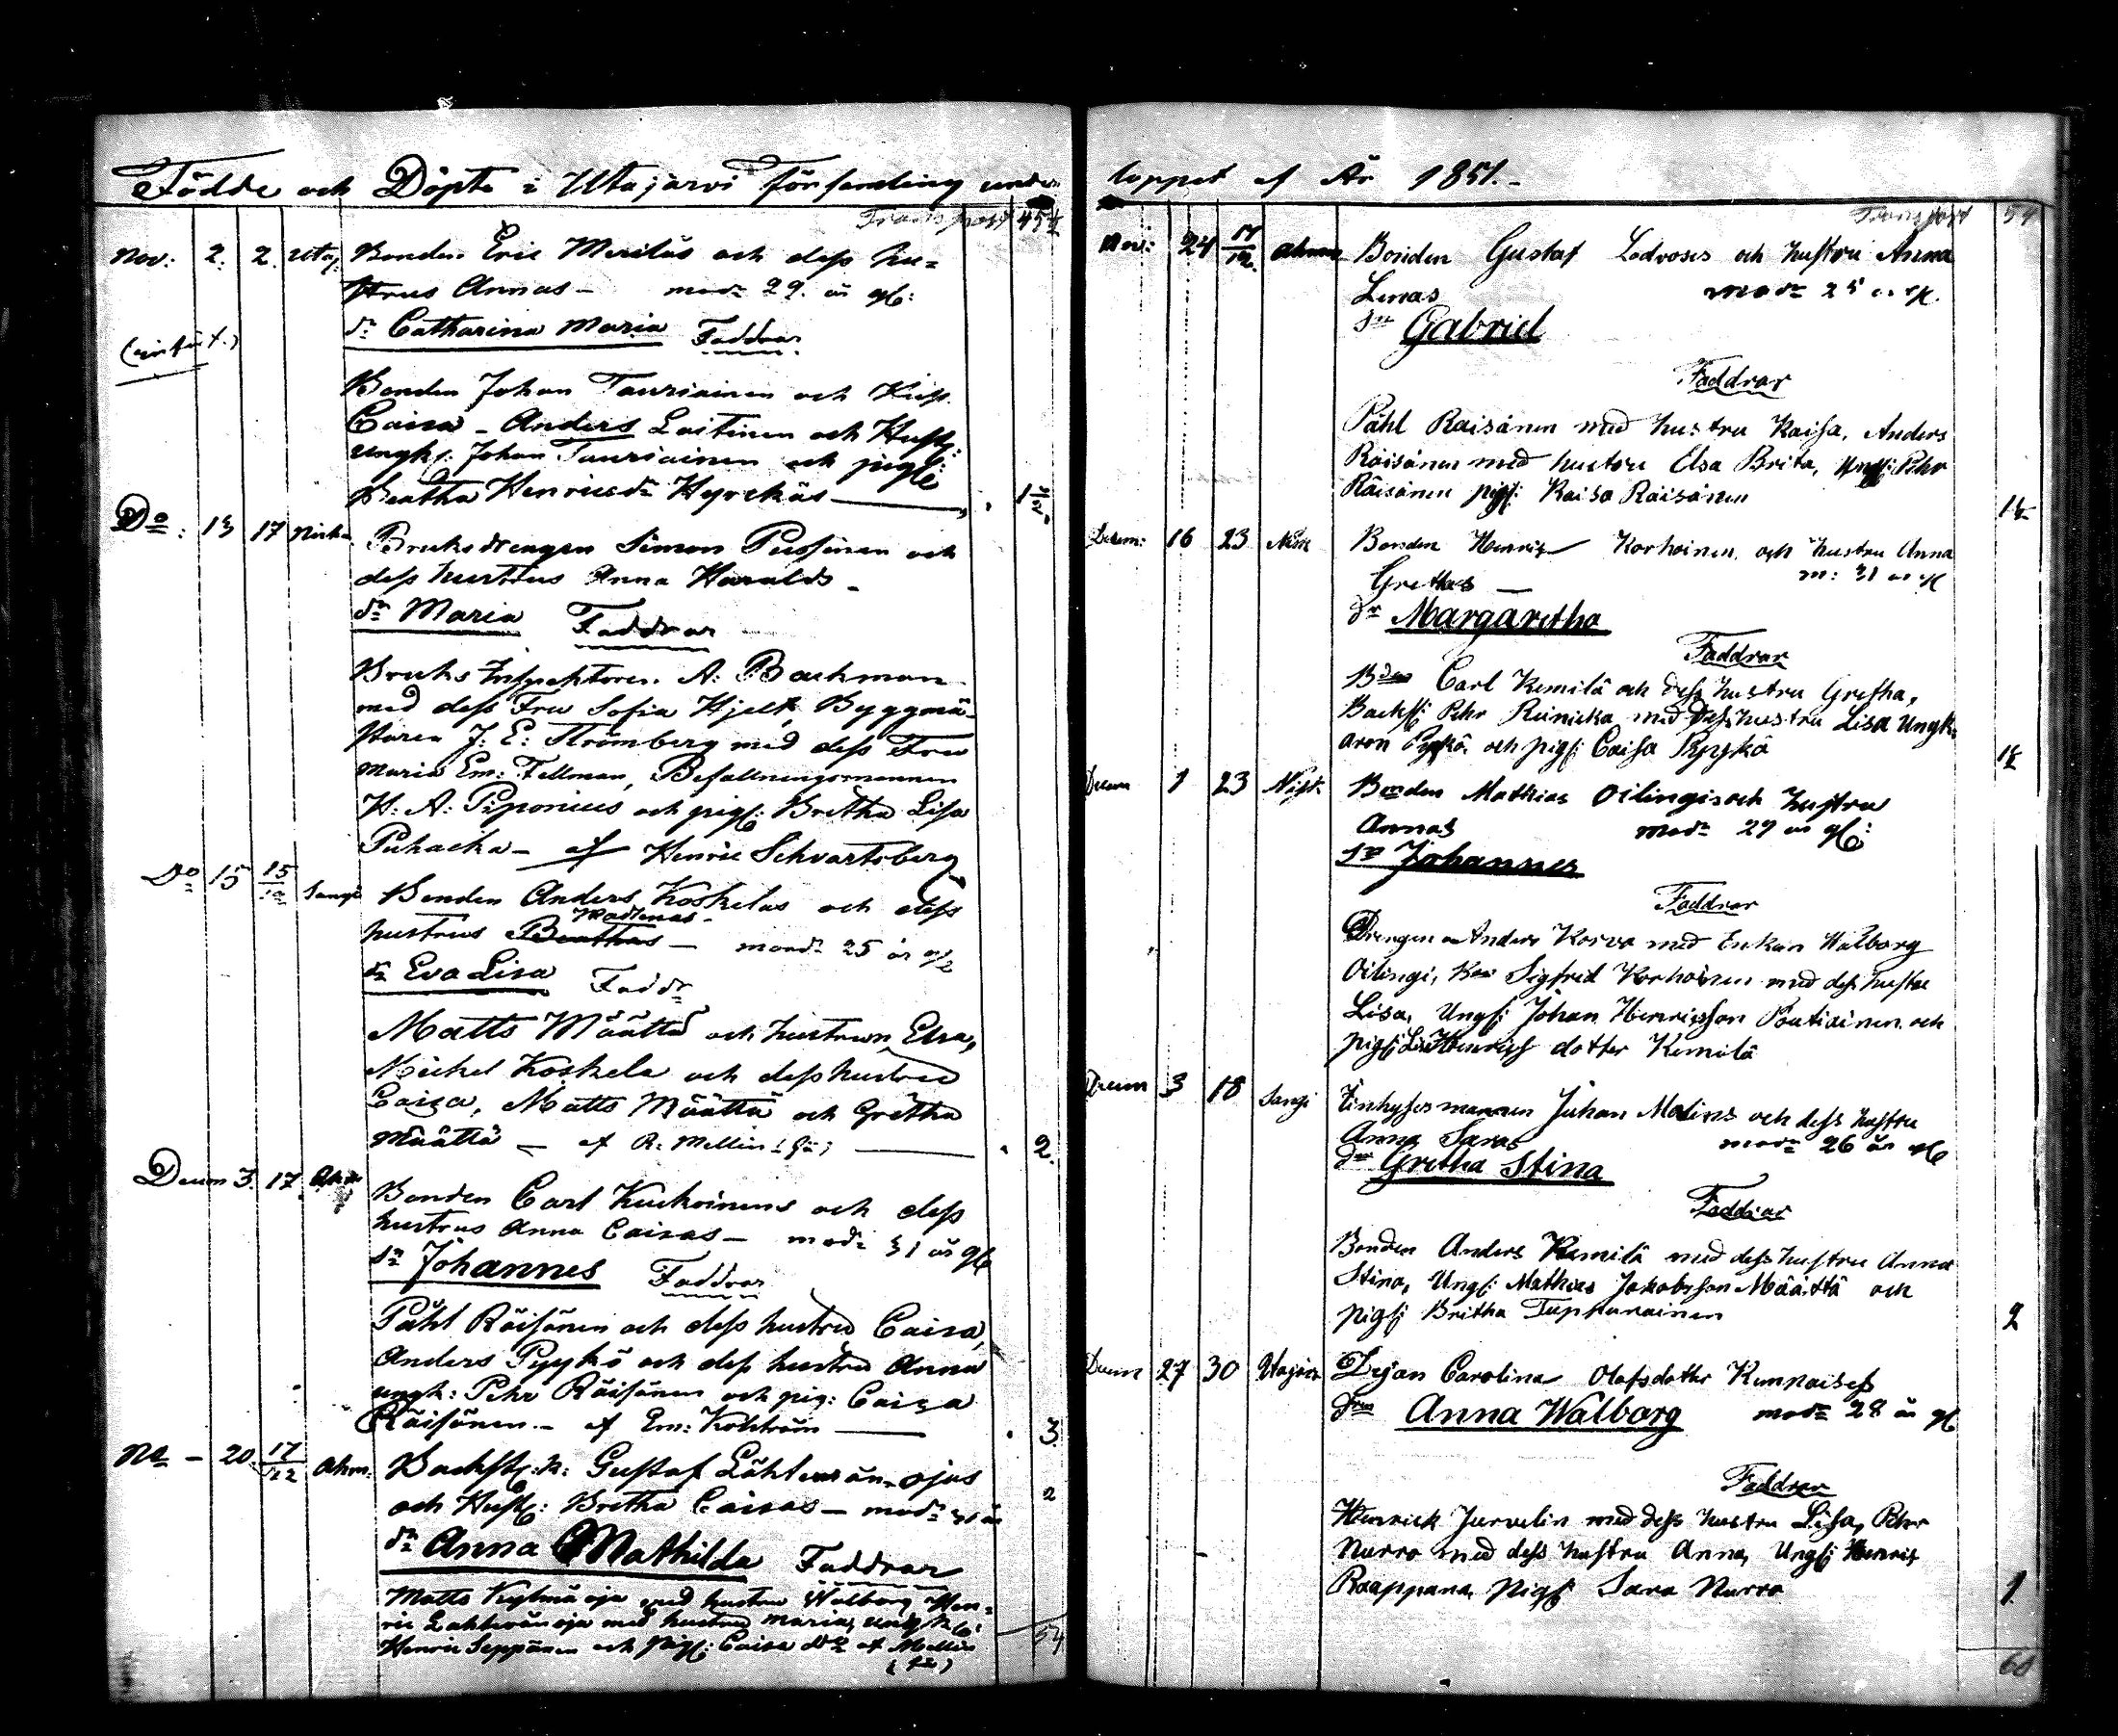 Födde och Döpte i Utajärvi Församling under
Transport 45½
Nov: 2. 2. Utaj: Bonden Eric Merilös och dess hu=
strus Annas — modr 29. år gl:
dr Catharina Maria Faddrar
Bonden Johan Tauriainen och
Caisa - Anders Laitinen och Hustr:
ungk: Johan Tauriainen och pigl:
Beatha Henricsdr Hyrckäs —
Do: 13 17 Bruksdrengen Simon Pussinen och
dess hustrus Anna Haralds -
dr Maria Faddrar
Bruks Inspektoren A: Backman
med dess Fru Sofia Hjelt, Byggmä-
staren J: E: Strömberg med dess Fru
Maria Em: Fellman, Befallningsmannen
H: A: Piponius och pigl: Bretha Lisa
Puhacka - af Henric Schvartsberg
Do 15 15/12 Sangi Bonden Anders Koskelas och dess
hustrus Beathas — modr 25 år gl
dr Eva Lisa Faddr
Matts Määttä och hustrun Elsa,
Michel Koskela och dess hustru
Caisa, Matts Määttä och Gretha
Määttä — af R: Mellin — 2.
Decem 3. 17. Bonden Carl Kuckoinens och dess
hustrus Anna Caisas — modr 31 år gl
sn Johannes Faddrar
Påhl Räisänen och dess hustru Caisa,
Anders Pyykö och dess hustru Anna
ungk: Pehr Räisänen och pig: Caisa
Räisänen - af Em: Kolström — 3.
No — 20. 17/12 Ahm. Backst: Gustaf Lähtevänojas
och Hust: Bretha Caisas — modr år 2
dr Anna Mathilda Faddrar
Matts Kylmäoja med hustru Walborg Hen=
ric Lahtevänoja med hustru Maria, ungk:
Henric Seppänen och pigl: Caisa do af Mellin
54
loppet af År 1851.-
Transport 54
Nov: 24 17/12. Ahmas Bonden Gustaf Lodvoses och hustru Anna
Lenas modr 25 år gl.
sn Gabriel
Faddrar
Påhl Raisänen med hustru Kaisa, Anders
Räisänen med hustru Elsa Brita, Ungk: Pehr
Räisänen pigl: Kaisa Räisänen
Decem: 16 23 Bonden Henric Korhoinen och hustru Anna
Grethas — m: 31 år gl
dr Margaretha
Faddrar
Bden Carl Kemilä och dess hustru Gretha,
Backst: Pehr Reinicka med dess hustru Lisa Ungk:
Aron och pigl: Caisa
Decem 1 23 Nisk Bonden Mathias Oilingis och hustru
Annas modr 29 år gl:
sn Johannes
Faddrar
Drengen Anders Korva med Enkan Walborg
Oilingi, Sigfred Korhoinen med dess hustru
Lisa, Ungk: Johan Henricsson Poutiainen och
pigl: Lisa Henrics dotter Kemilä
Decem 3 18 Sangi Inhysesmannen Johan Molins och dess hustru
Anna Saras modr 26 år gl
dr Gretha Stina
Faddrar
Bonden Anders Kemilä med dess hustru Anna
Stina, Ungk: Mathias Jakobsson Määttä och
pigl: Britha Tupturainen 2
Decem 27 30 Utajärvi Dejan Carolina Olofsdotter Kempaises
drn Anna Walborg modr 28 år gl
Faddrar
Henrick Jurvelin med dess hustru Lisa, Pehr
Nurro med dess hustru Anna, Ungk: Henric
Raappana, Pigl: Sara Nurro 1.
60